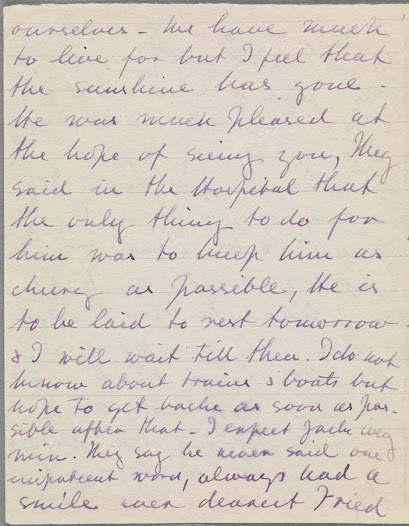 ourselves - We have much
to live for but I feel that
the sunshine has gone -
He was much pleased at
the hope of seeing you, They
said in the Hospital that
the only thing to do for
him was to keep him as
cheery as possible, He is
to be laid to rest tomorrow
& I will wait till then. I do not
know about trains & boats but
hope to get back as soon as pos-
sible after that - I expect Jack
min. They say he never said one
impatient word, always had a
smile dearest Fried